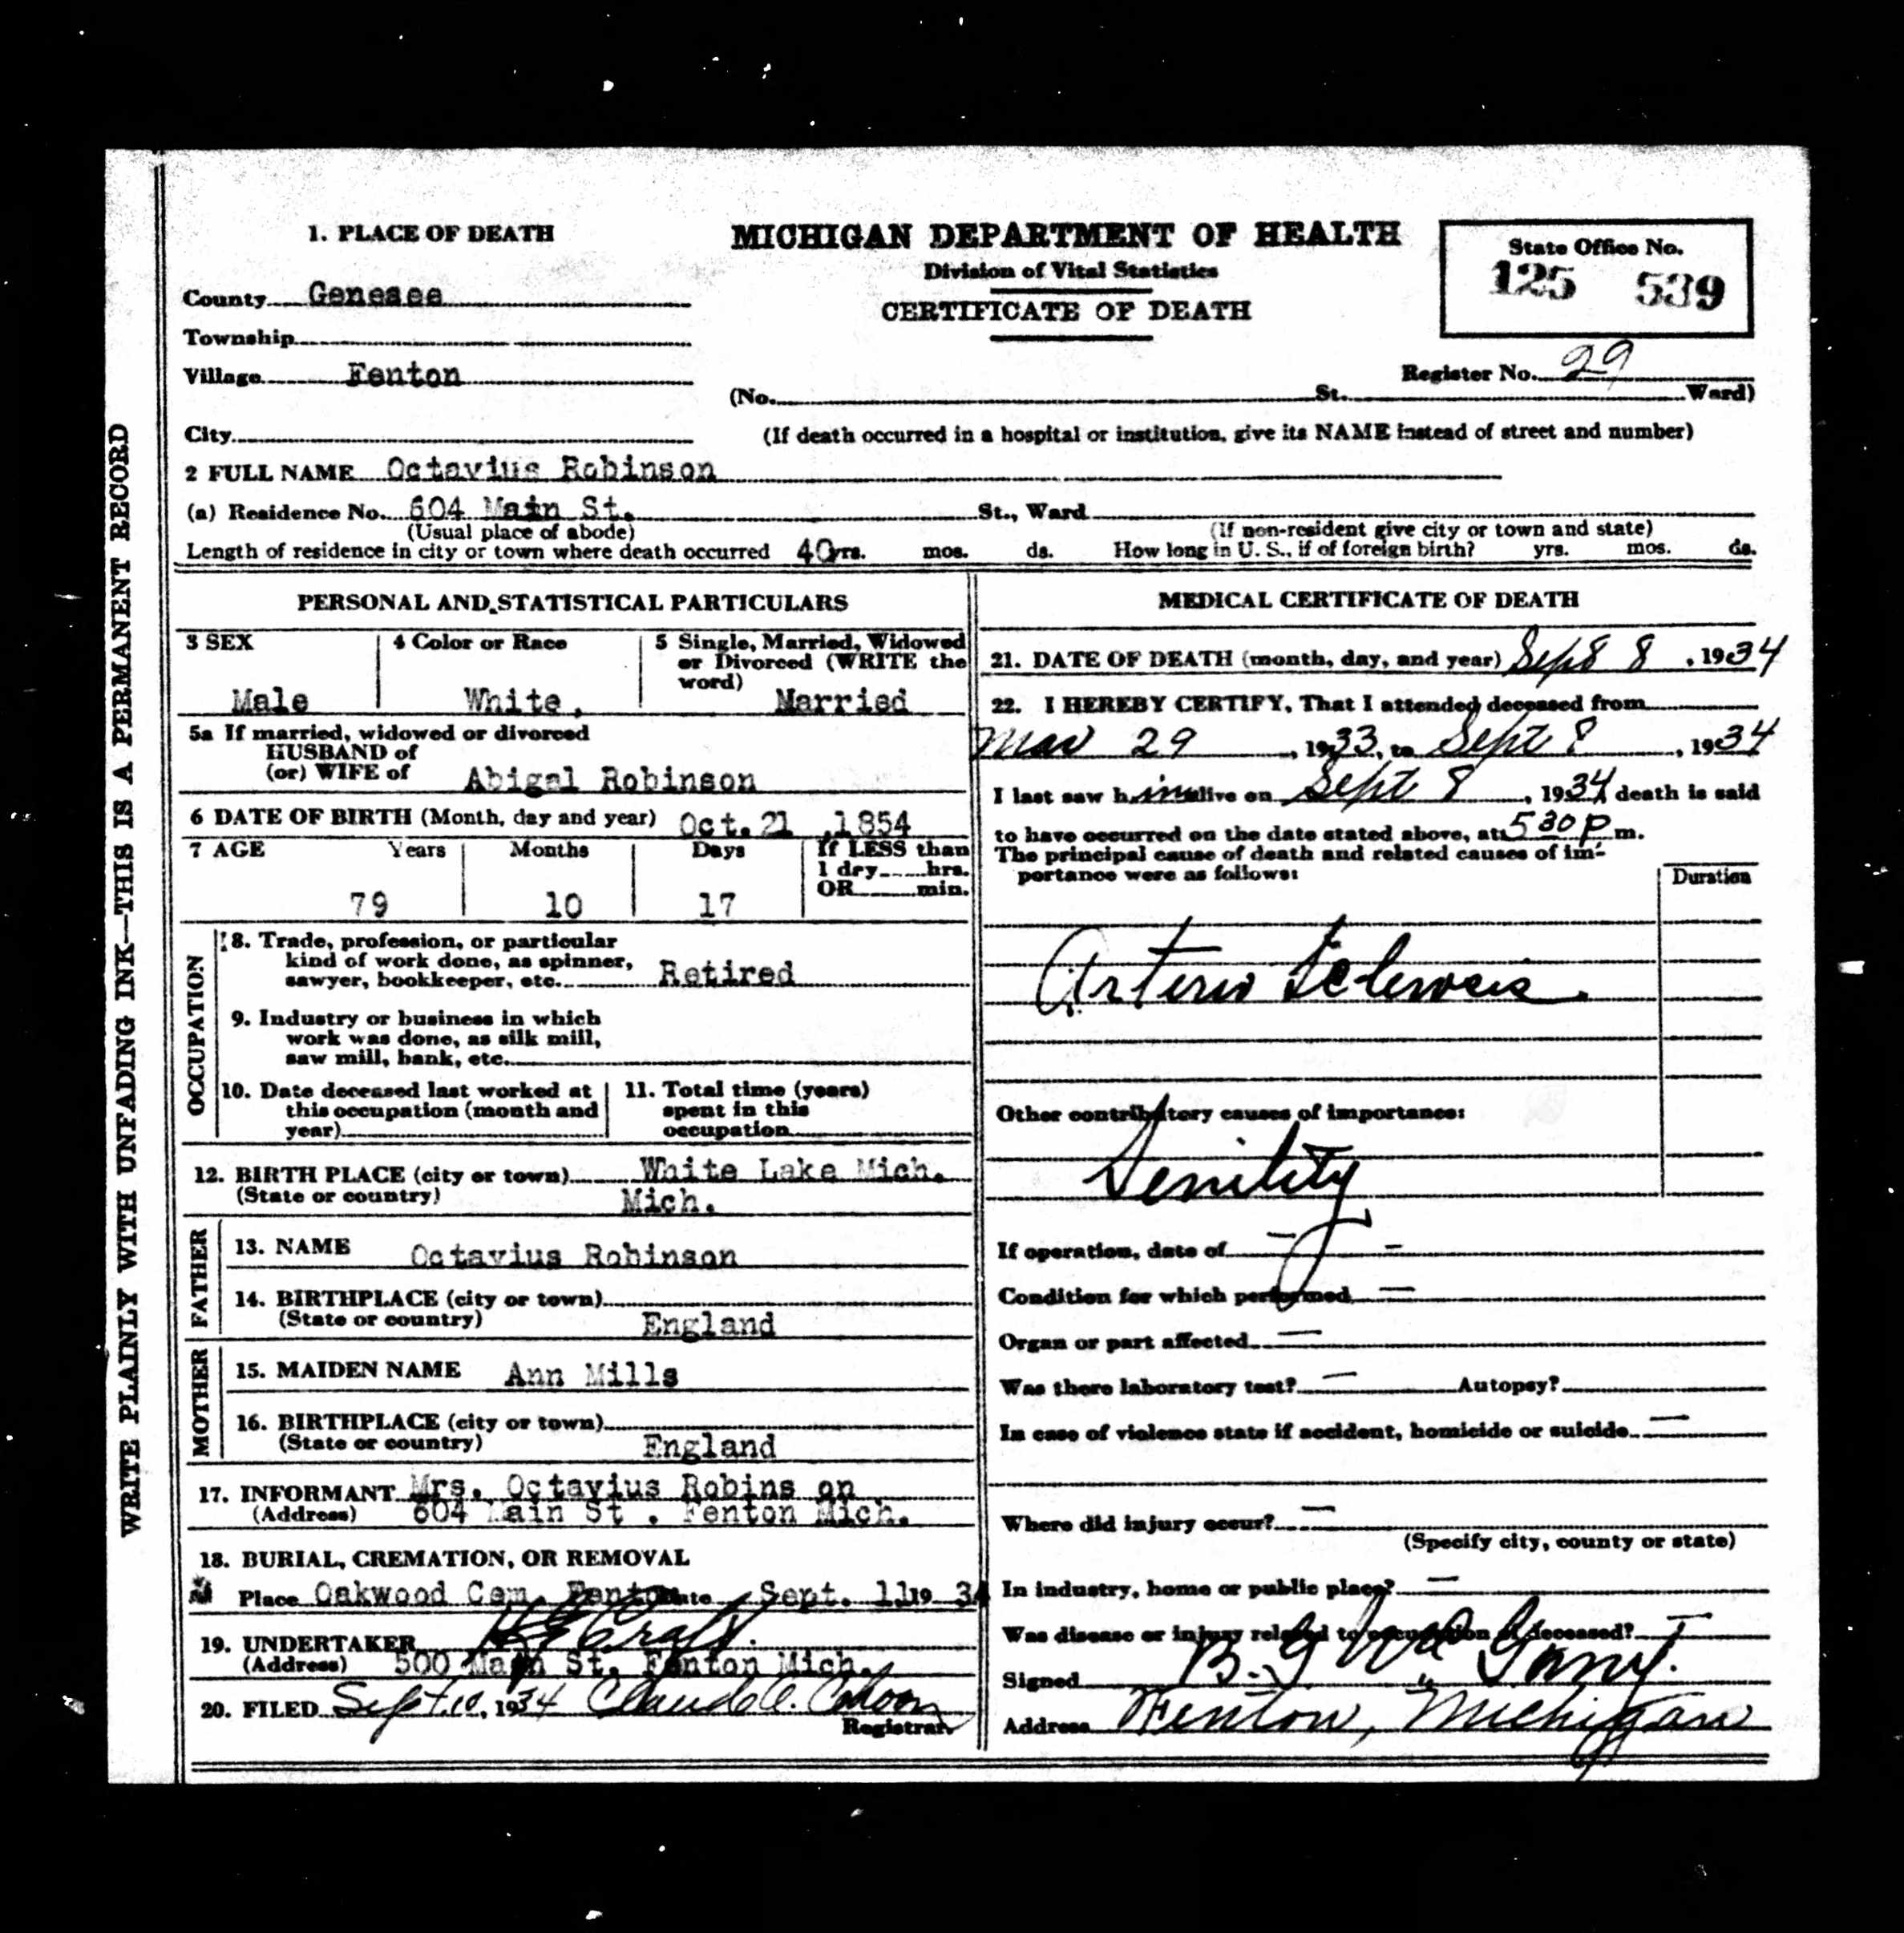 WRITE PLAINLY WITH UNFADING INK—THIS IS A PERMANENT RECORD
1. PLACE OF DEATH
County Genesee
Township
Village Fenton
City
MICHIGAN DEPARTMENT OF HEALTH
Division of Vital Statistics
CERTIFICATE OF DEATH
State Office No.
125 539
Register No. 29
(No. St. Ward)
(If death occurred in a hospital or institution, give its NAME instead of street and number)
2 FULL NAME Octavius Robinson
(a) Residence No. 604 Main St. St., Ward
(Usual place of abode) (If non-resident give city or town and state)
Length of residence in city or town where death occurred 40 yrs. mos. ds. How long in U. S., if of foreign birth? yrs. mos. ds.
PERSONAL AND STATISTICAL PARTICULARS
3 SEX
Male
4 Color or Race
White.
5 Single, Married, Widowed
or Divorced (WRITE the
word)
Married
5a If married, widowed or divorced
HUSBAND of
(or) WIFE of Abigal Robinson
6 DATE OF BIRTH (Month, day and year) Oct. 21 ,1854
7 AGE Years Months Days If LESS than
1 dry hrs.
OR min.
79 10 17
OCCUPATION
8. Trade, profession, or particular
kind of work done, as spinner,
sawyer, bookkeeper, etc. Retired
9. Industry or business in which
work was done, as silk mill,
saw mill, bank, etc.
10. Date deceased last worked at
this occupation (month and
year)
11. Total time (years)
spent in this
occupation
12. BIRTH PLACE (city or town) White Lake Mich.
(State or country) Mich.
FATHER
13. NAME Octavius Robinson
14. BIRTHPLACE (city or town)
(State or country) England
MOTHER
15. MAIDEN NAME Ann Mills
16. BIRTHPLACE (city or town)
(State or country) England
17. INFORMANT Mrs. Octavius Robins on
(Address) 604 Main St . Fenton Mich.
18. BURIAL, CREMATION, OR REMOVAL
Place Oakwood Cem. Fenton Date Sept. 11 19 34
19. UNDERTAKER
(Address) 500 Main St. Fenton Mich.
20. FILED Sept. 10, 1934 Claude
Registrar.
MEDICAL CERTIFICATE OF DEATH
21. DATE OF DEATH (month, day, and year) Sept 8 , 1934
22. I HEREBY CERTIFY, That I attended deceased from
29 , 1933, to Sept 8 , 1934
I last saw h im alive on Sept 8 , 1934, death is said
to have occurred on the date stated above, at 5 30 P m.
The principal cause of death and related causes of im-
portance were as follows:
Duration
Arterio Sclerosis.
Other contributory causes of importance:
Senility
If operation, date of — —
Condition for which performed —
Organ or part affected —
Was there laboratory test? — Autopsy?
In case of violence state if accident, homicide or suicide —
Where did injury occur? —
(Specify city, county or state)
In industry, home or public place? —
Was disease or injury related to occupation of deceased? —
Signed B. G
Address Fenton, Michigan